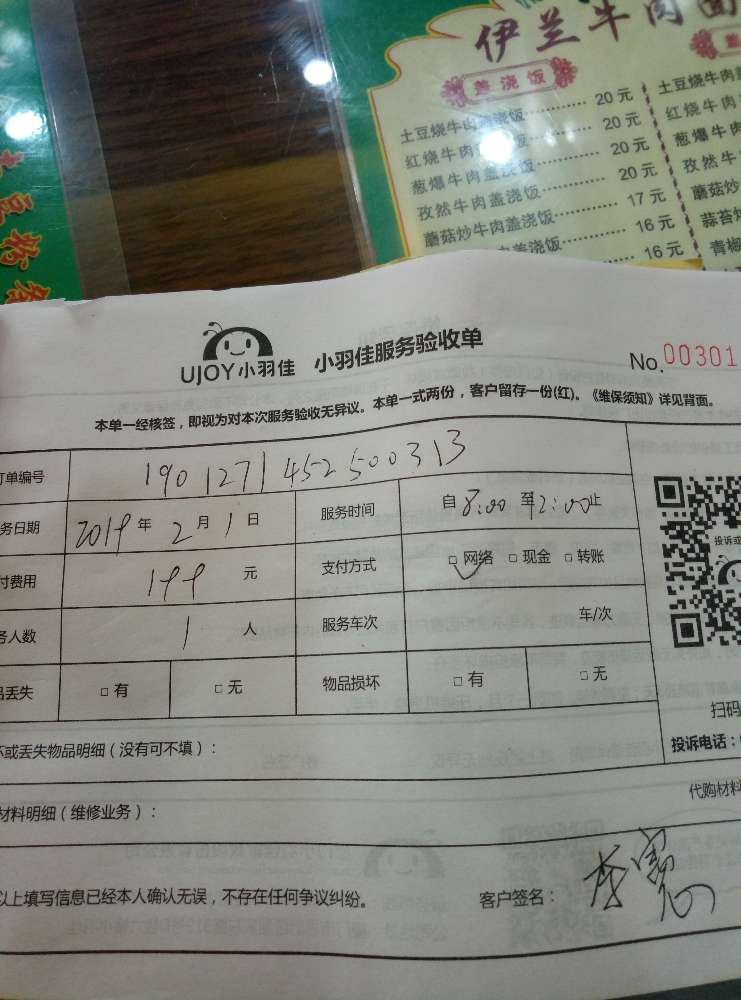 伊兰牛肉面
盖浇饭
土豆烧牛肉盖浇饭 20元
红烧牛肉盖浇饭 20元
葱爆牛肉盖浇饭 20元
孜然牛肉盖浇饭 17元
蘑菇炒牛肉盖浇饭 16元
肉盖浇饭 16元
土豆烧牛肉
红烧牛肉
葱爆牛
孜然
蘑菇
蒜苔
青椒
UJOY小羽佳 小羽佳服务验收单 No.00301
本单一经核签，即视为对本次服务验收无异议。本单一式两份，客户留存一份(红)。《维保须知》详见背面。
订单编号 1901271452500313
务日期 2019年2月1日 服务时间 自8:00至12:00止
付费用 199元 支付方式 □网络 □现金 □转账
务人数 1人 服务车次 车/次
品丢失 □有 □无 物品损坏 □有 □无
投诉或
扫码
投诉电话：
坏或丢失物品明细（没有可不填）：
代购材料
材料明细（维修业务）：
以上填写信息已经本人确认无误，不存在任何争议纠纷。 客户签名：